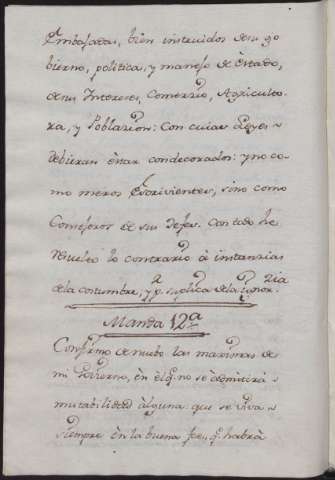 Embajadas, bien instruidos de su go
bierno, politica, y manejo de Estado,
de sus Intereses, Comercio, Agricultu-
ra, y Poblacion: Con cuias Leyes
debieran èstar condecorados: y no co-
mo meros Escrivientes, sino como
Consejeros de sus Jefes. Con todo he
resuelto lo contrario à instancias
de la costumbre, y pr. suplica de la
Manda 12ª
Confirmo de nuebo las maximas de
mi Govierno, èn el q. no se àdmitirá
mutabilidad àlguna que se viva
siempre èn la buena fee, q. habrà